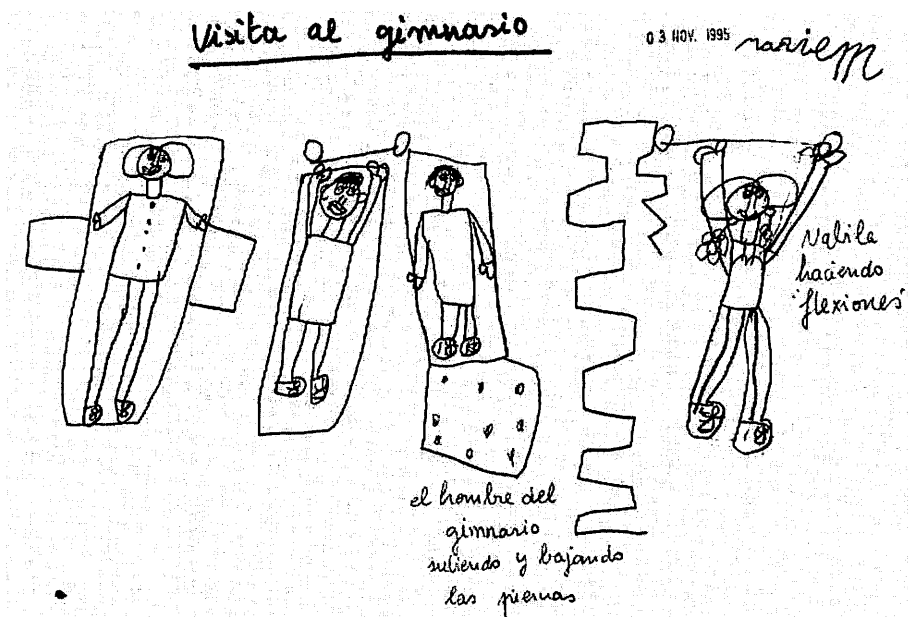 Visita al gimnasio
03 NOV. 1995 mariem
Nabila
haciendo
"flexiones"
el hombre del
gimnasio
subiendo y bajando
las piernas